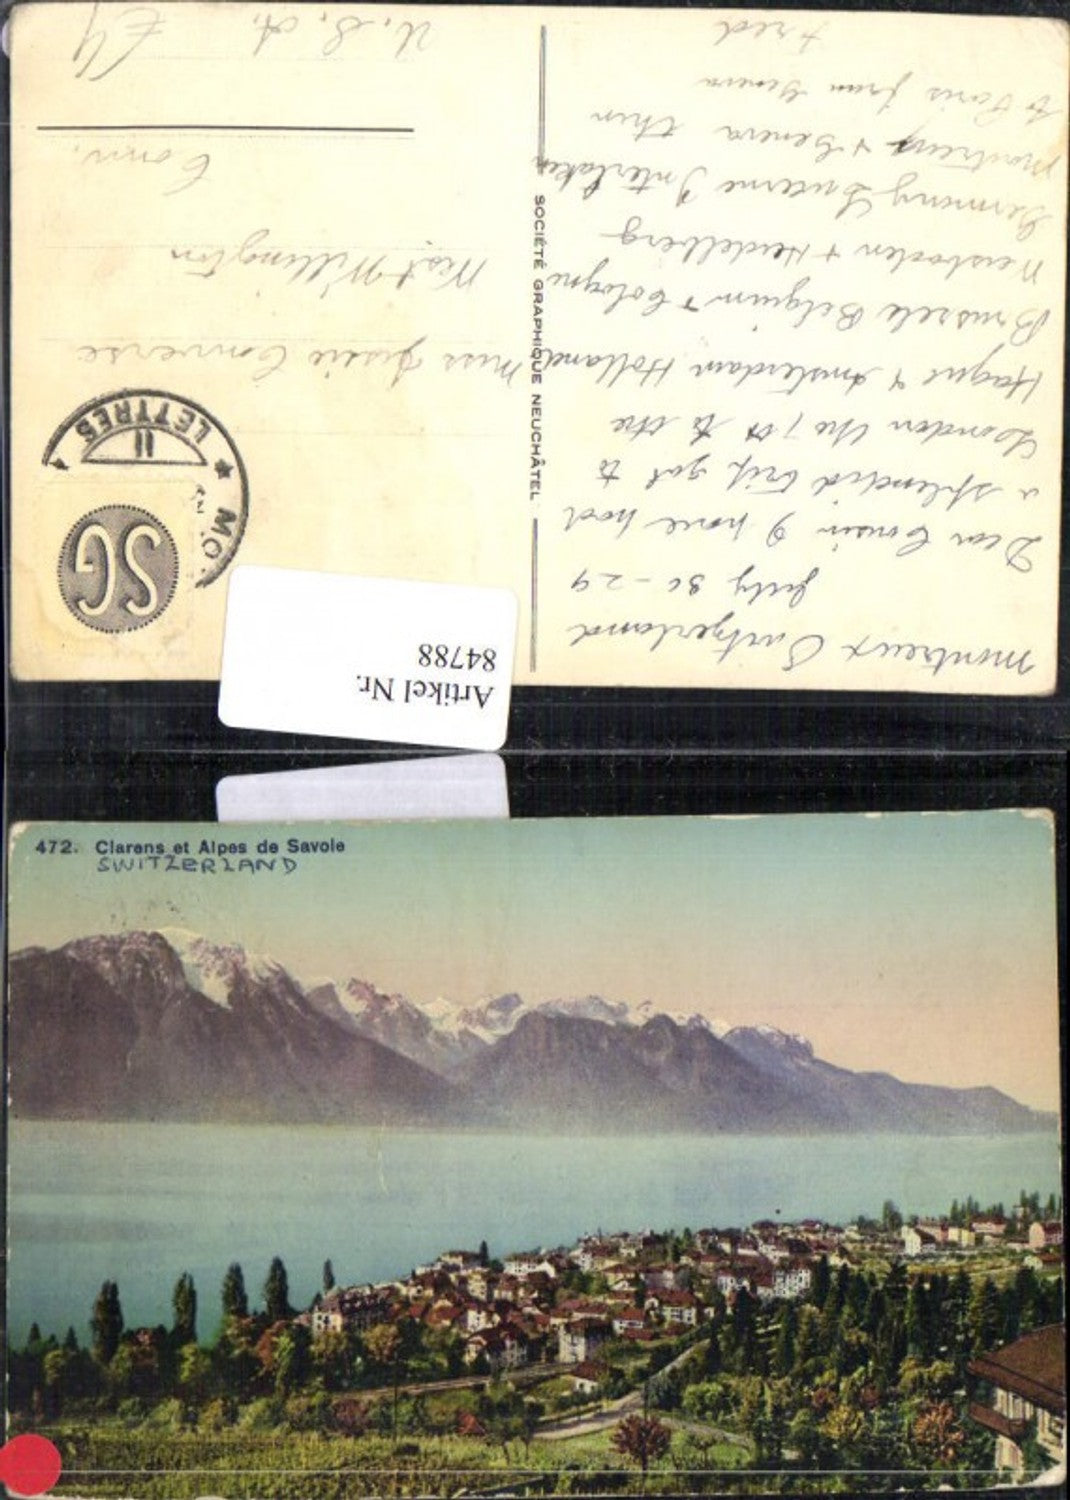 Montreux Switzerland
July 30 - 29
Dear Cousin I have had
a splendid trip got to
London the
Hague & Amsterdam Holland
Brussels Belgium & Cologne
Weisbaden & Heidelberg
Germany Lucerne Interlaken
Montreux & Geneva then
to Paris from Geneva
Fred
SOCIÉTÉ GRAPHIQUE NEUCHÂTEL
SG
LETTRES
II
MO
Miss Jessie Converse
West Willington
Conn.
U. S. A.
Artikel Nr.
84788
472. Clarens et Alpes de Savoie
SWITZERLAND